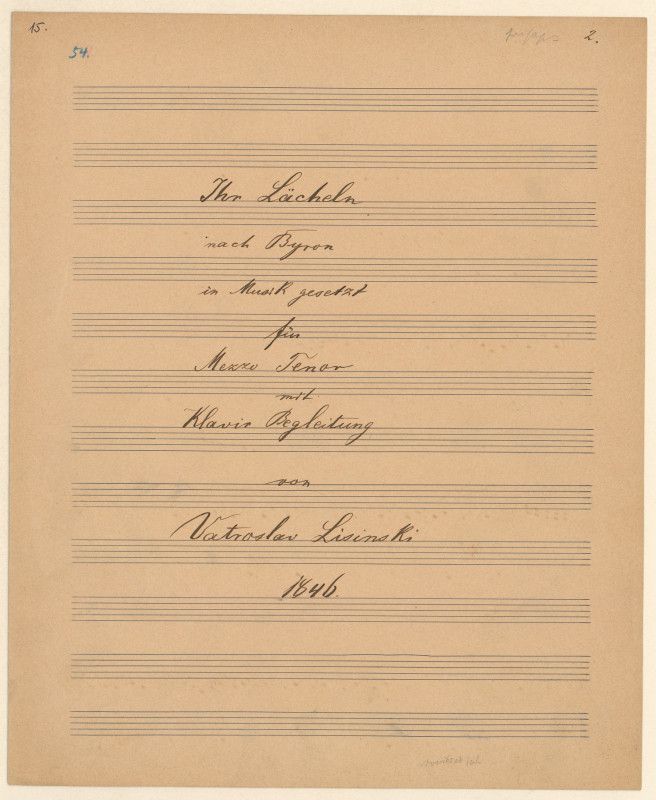 15.
2.
54.
Ihr Lächeln
nach Byron
in Musik gesetzt
für
Mezzo Tenor
mit
Klavir Begleitung
von
Vatroslav Lisinski
1846.